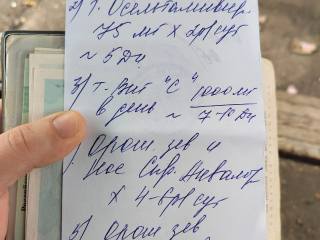 2) т. Осельтамивир
75 мг х 2р/сут
~ 5 дн
3) т. Вит "С" 1000мг
в день ~ 7-10 дн
Орош. зев и
нос Спр. Аквалор
х 4-6р/сут
5) Орош зев